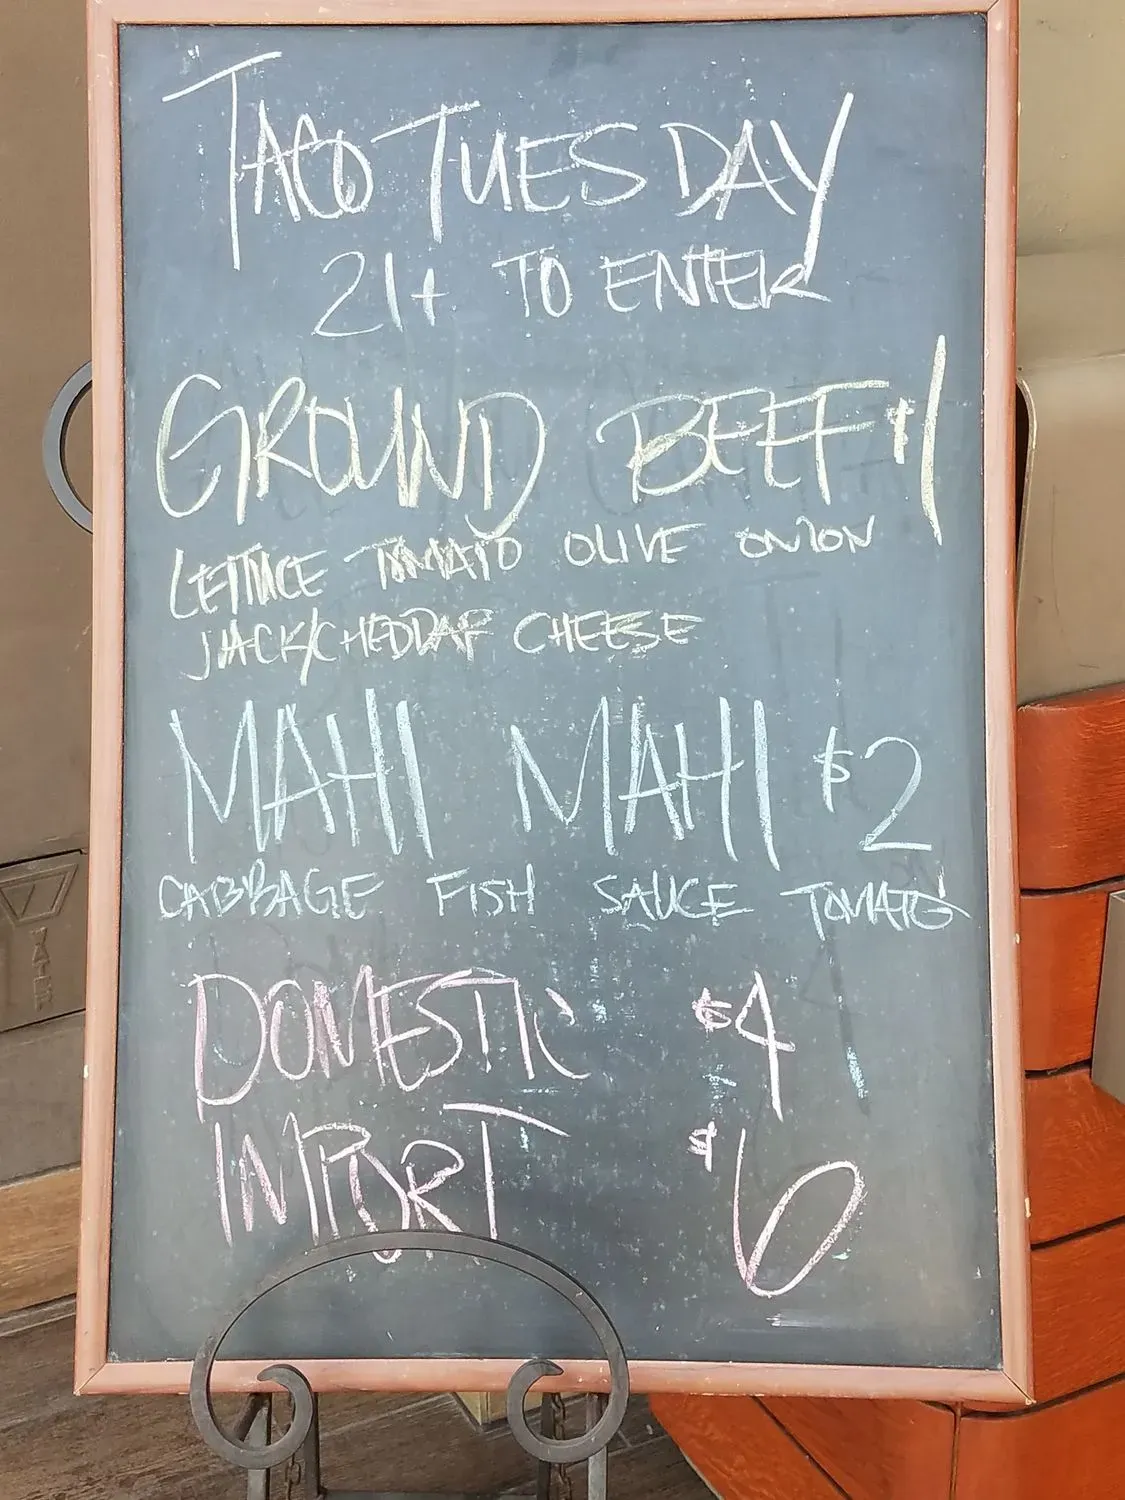 TACO TUESDAY
21+ TO ENTER
GROUND BEEF $1
LETTUCE TOMATO OLIVE ONION
JACK/CHEDDAR CHEESE
MAHI MAHI $2
CABBAGE FISH SAUCE TOMATO
DOMESTIC $4
IMPORT $6
WATER